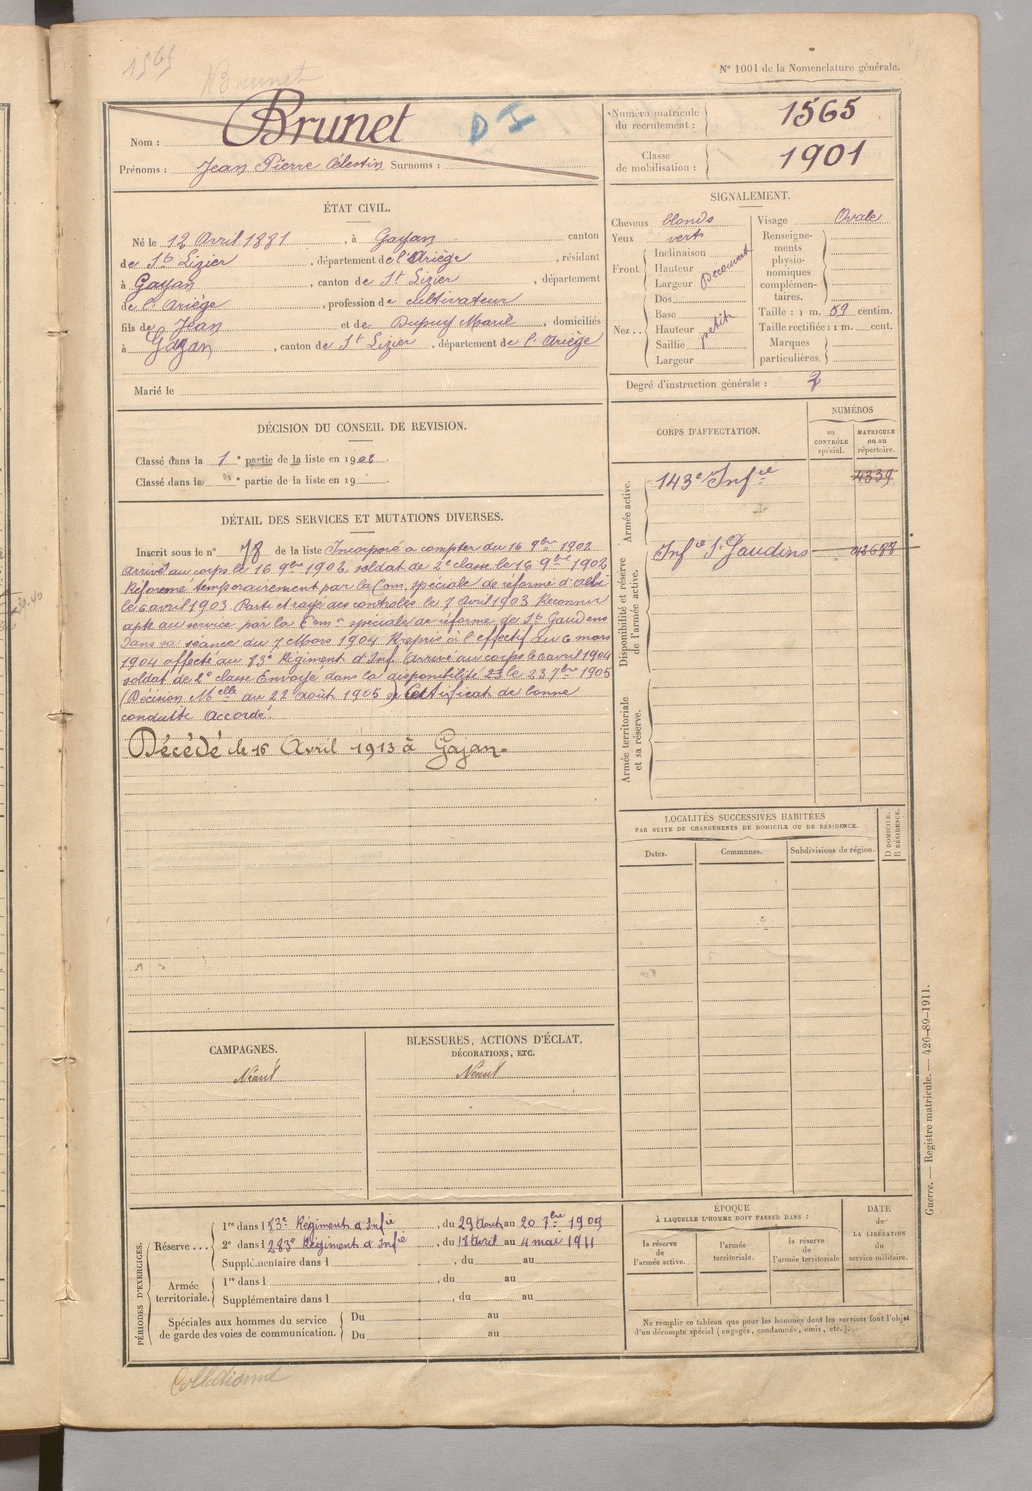 1565
Brunet
N° 1001 de la Nomenclature générale.
Nom : Brunet
D
Prénoms : Jean Pierre Célestin Surnoms :
Numéro matricule du recrutement : 1565
Classe de mobilisation : 1901
ÉTAT CIVIL.
Né le 12 Avril 1881, à Gajan canton
de St Lizier, département de l'Ariège, résidant
à Gajan, canton de St Lizier, département
de l'Ariège, profession de cultivateur
fils de Jean et de Dupuy Marie, domiciliés
à Gajan, canton de St Lizier, département de l'Ariège
Marié le
SIGNALEMENT.
Cheveux blonds
Yeux verts
Front. Inclinaison
Hauteur
Largeur découvert
Nez.. Dos
Base
Hauteur petit
Saillie
Largeur
Visage Ovale
Renseignements physionomiques complémentaires.
Taille : 1 m. 59 centim.
Taille rectifiée : 1 m. cent.
Marques particulières.
Degré d'instruction générale : 2
DÉCISION DU CONSEIL DE REVISION.
Classé dans la 1e partie de la liste en 1902.
Classé dans la e partie de la liste en 19
CORPS D'AFFECTATION.
NUMÉROS
au CONTRÔLE spécial.
MATRICULE ou au répertoire.
Armée active.
143e Infie 4339
Disponibilité et réserve de l'armée active.
Infie St Gaudins 012688
Armée territoriale et sa réserve.
DÉTAIL DES SERVICES ET MUTATIONS DIVERSES.
Inscrit sous le n° 78 de la liste Incorporé à compter du 16 9bre 1902
arrivé au corps le 16 9bre 1902 soldat de 2e classe le 16 9bre 1902
Réformé temporairement par la Com. spéciale de réforme d'Albi
le 6 avril 1903. Parti et rayé des contrôles le 7 Avril 1903 Reconnu
apte au service par la Comon spéciale de réforme de St Gaudens
dans sa séance du 7 Mars 1904 Repris à l'effectif du 6 mars
1904 affecté au 83e Régiment d'Inf. Arrivé au corps le 6 avril 1904
soldat de 2e classe Envoyé dans la disponibilité le 23 7bre 1905
(Décision Melle du 22 août 1905) Certificat de bonne
conduite Accordé.
Décédé le 16 Avril 1913 à Gajan.
LOCALITÉS SUCCESSIVES HABITÉES
PAR SUITE DE CHANGEMENTS DE DOMICILE OU DE RÉSIDENCE.
Dates.
Communes.
Subdivisions de région.
D DOMICILE.
R RÉSIDENCE.
CAMPAGNES.
Néant
BLESSURES, ACTIONS D'ÉCLAT,
DÉCORATIONS, ETC.
Néant
PÉRIODES D'EXERCICES.
Réserve... 1re dans l 83e Régiment d'Infie, du 29 Août au 20 7bre 1909
2e dans l 283e Régiment d'Infie, du 18 Avril au 4 mai 1911
Supplémentaire dans l , du au
Armée territoriale. 1re dans l , du au
Supplémentaire dans l , du au
Spéciales aux hommes du service de garde des voies de communication. Du au
Du au
ÉPOQUE
À LAQUELLE L'HOMME DOIT PASSER DANS :
la réserve de l'armée active.
l'armée territoriale.
la réserve de l'armée territoriale
DATE de LA LIBÉRATION du service militaire.
Ne remplir ce tableau que pour les hommes dont les services font l'objet
d'un décompte spécial (engagés, condamnés, omis, etc.).
Guerre. — Registre matricule. — 426-89-1911.
Collationné